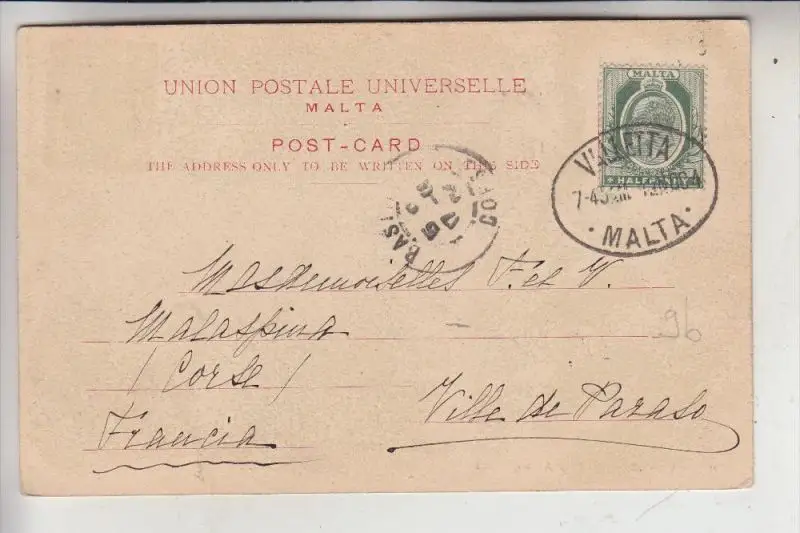 UNION POSTALE UNIVERSELLE
MALTA
POST-CARD
THE ADDRESS ONLY TO BE WRITTEN ON THIS SIDE
MALTA
HALFPENNY
VALLETTA
7-45
MALTA
BASTIA
CORSE
Mesdemoiselles F. et V.
Malaspina
96
(Corse)
Ville de Paraso
Francia